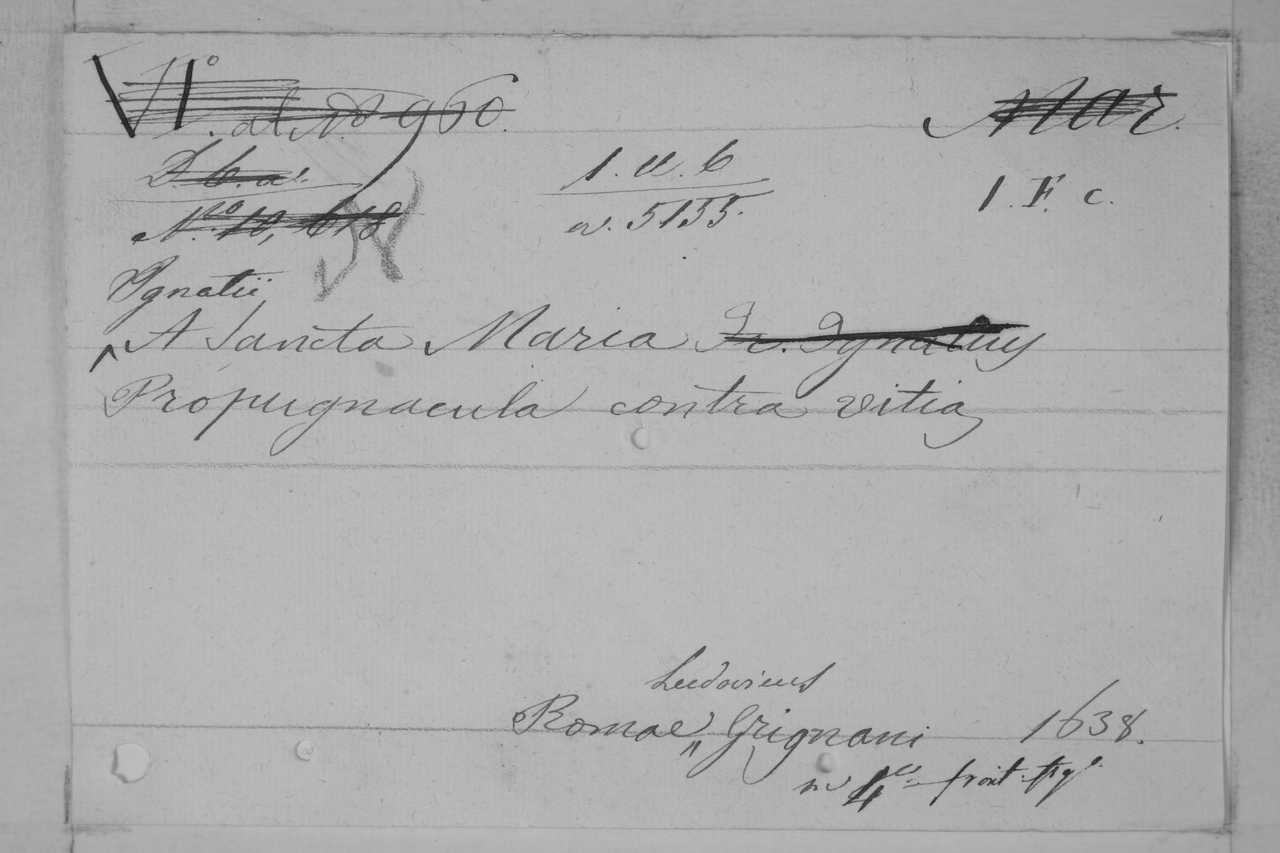 VI.° al N.° 960. Mar.
D. b. a.
1. a. b
N.ro 10,618
a. 5155.
1. F. c.
58
Ignatii
A Sancta Maria Fr. Ignatius
Propugnacula contra vitia
Ludovicus
Romae Grignani 1638.
in 4.° front. fig.